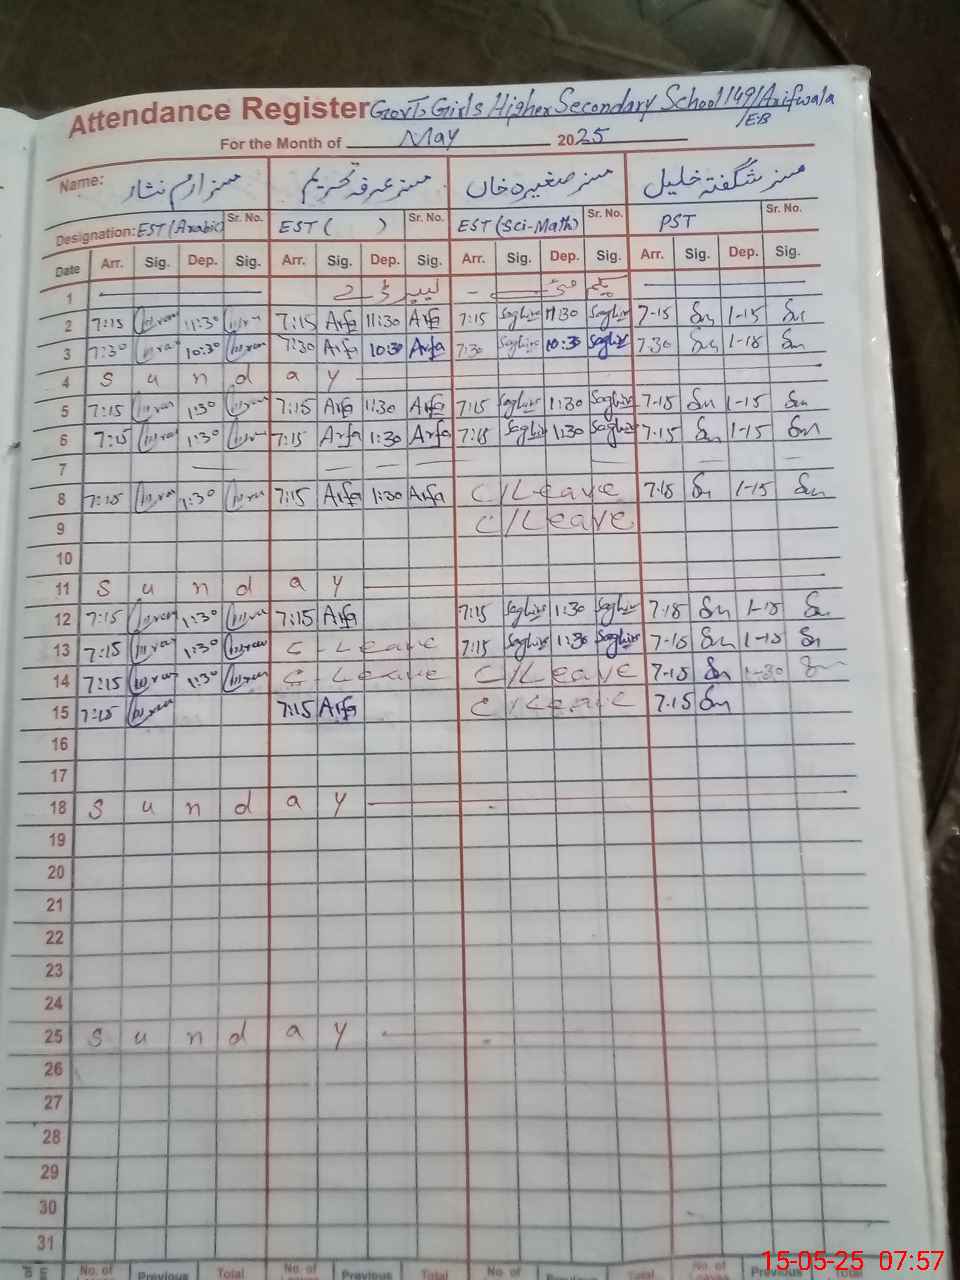 Attendance Register Govt. Girls Higher Secondary School 149/Arifwala
/EB
For the Month of May 2025
Name: مسز ارم نثار مسز عرفہ تحریم مسز صغیرہ خان مسز شگفتہ خلیل
Designation: EST (Arabic) Sr. No. EST ( ) Sr. No. EST (Sci-Math) Sr. No. PST Sr. No.
Date Arr. Sig. Dep. Sig. Arr. Sig. Dep. Sig. Arr. Sig. Dep. Sig. Arr. Sig. Dep. Sig.
1 لیبر ڈے یکم مئی
2 7:15 11:30 7:15 Arfa 11:30 Arfa 7:15 Saghira 11:30 Saghira 7-15 1-15
3 7:30 10:30 7:30 Arfa 10:30 Arfa 7:30 Saghira 10:30 Saghira 7.30 1-15
4 S u n d a y
5 7:15 1:30 7:15 Arfa 1:30 Arfa 7:15 Saghira 1:30 Saghira 7-15 1-15
6 7:15 1:30 7:15 Arfa 1:30 Arfa 7:15 Saghira 1:30 Saghira 7.15 1-15
7
8 7:15 1:30 7:15 Arfa 1:30 Arfa C/Leave 7.15 1-15
9 C/Leave
10
11 S u n d a y
12 7:15 1:30 7:15 Arfa 7:15 Saghira 1:30 Saghira 7.15 1-15
13 7:15 1:30 C-Leave 7:15 Saghira 1:30 Saghira 7-15 1-15
14 7:15 1:30 C-Leave C/Leave 7-15 1-30
15 7:15 7:15 Arfa C/Leave 7.15
16
17
18 S u n d a y
19
20
21
22
23
24
25 S u n d a y
26
27
28
29
30
31
No. of Previous Total No. of Previous Total No. of Previous Total No. of Previous Total
15-05-25 07:57